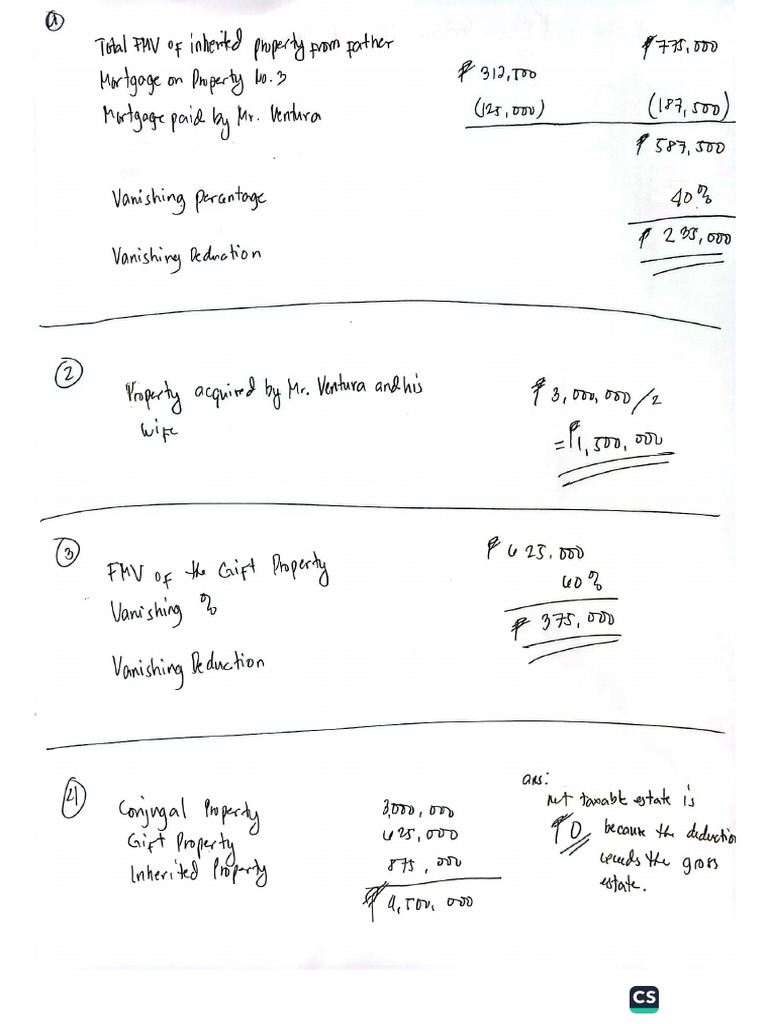 1
Total FMV of inherited property from father ₱775,000
Mortgage on Property No. 3 ₱312,500
Mortgage paid by Mr. Ventura (125,000) (187,500)
₱587,500
Vanishing percentage 40%
Vanishing Deduction ₱235,000
2
Property acquired by Mr. Ventura and his ₱3,000,000/2
wife =₱1,500,000
3
FMV of the Gift Property ₱625,000
Vanishing % 60%
₱375,000
Vanishing Deduction
4
Conjugal Property 3,000,000
Gift Property 625,000
Inherited Property 875,000
₱4,500,000
ans:
net taxable estate is
₱0 because the deduction
the gross
estate.
CS